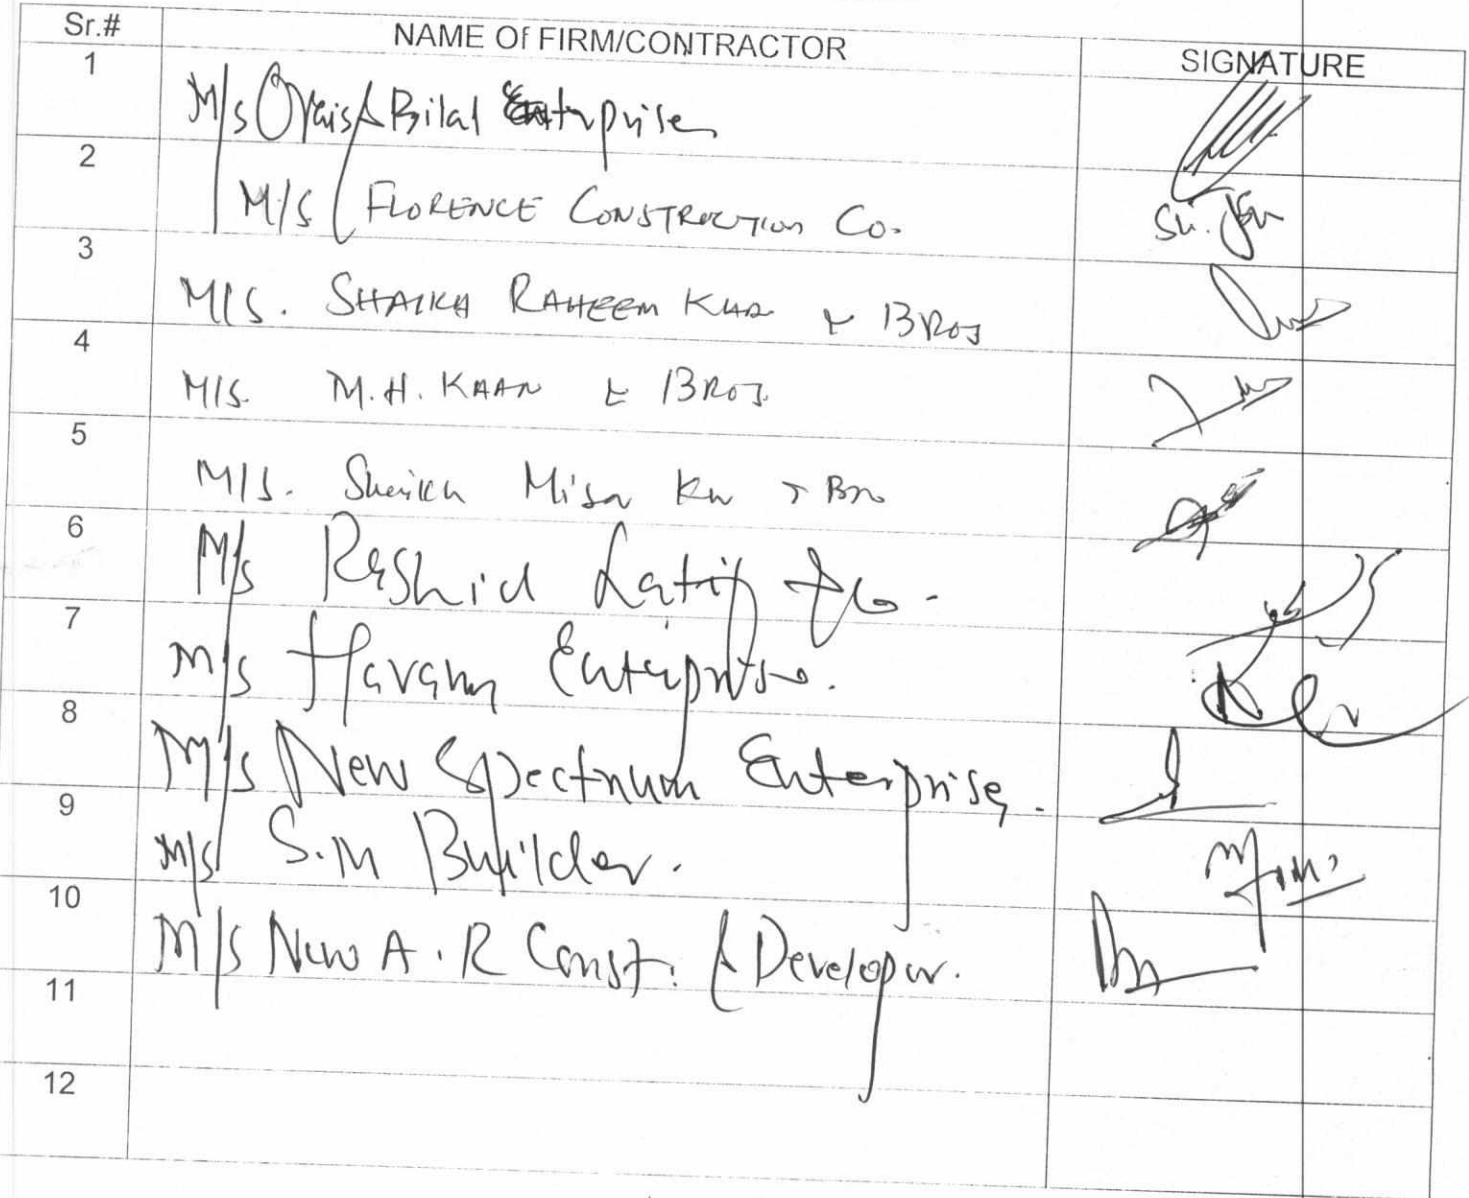 Sr.# NAME Of FIRM/CONTRACTOR SIGNATURE
1 M/s Ovais & Bilal Enterprises
2 M/S FLORENCE CONSTRUCTION Co.
3 M/S. SHAIKH RAHEEM & BROS
4 M/S. M.H. KHAN & BROS.
5 M/S. Sheikh Misa & Bro
6 M/s Rashid Latif & Co.
7 M/s Haram Enterprise.
8 M/s New Spectrum Enterprises.
9 M/s S.M Builder.
10 M/s New A.R Const. & Developer.
11
12